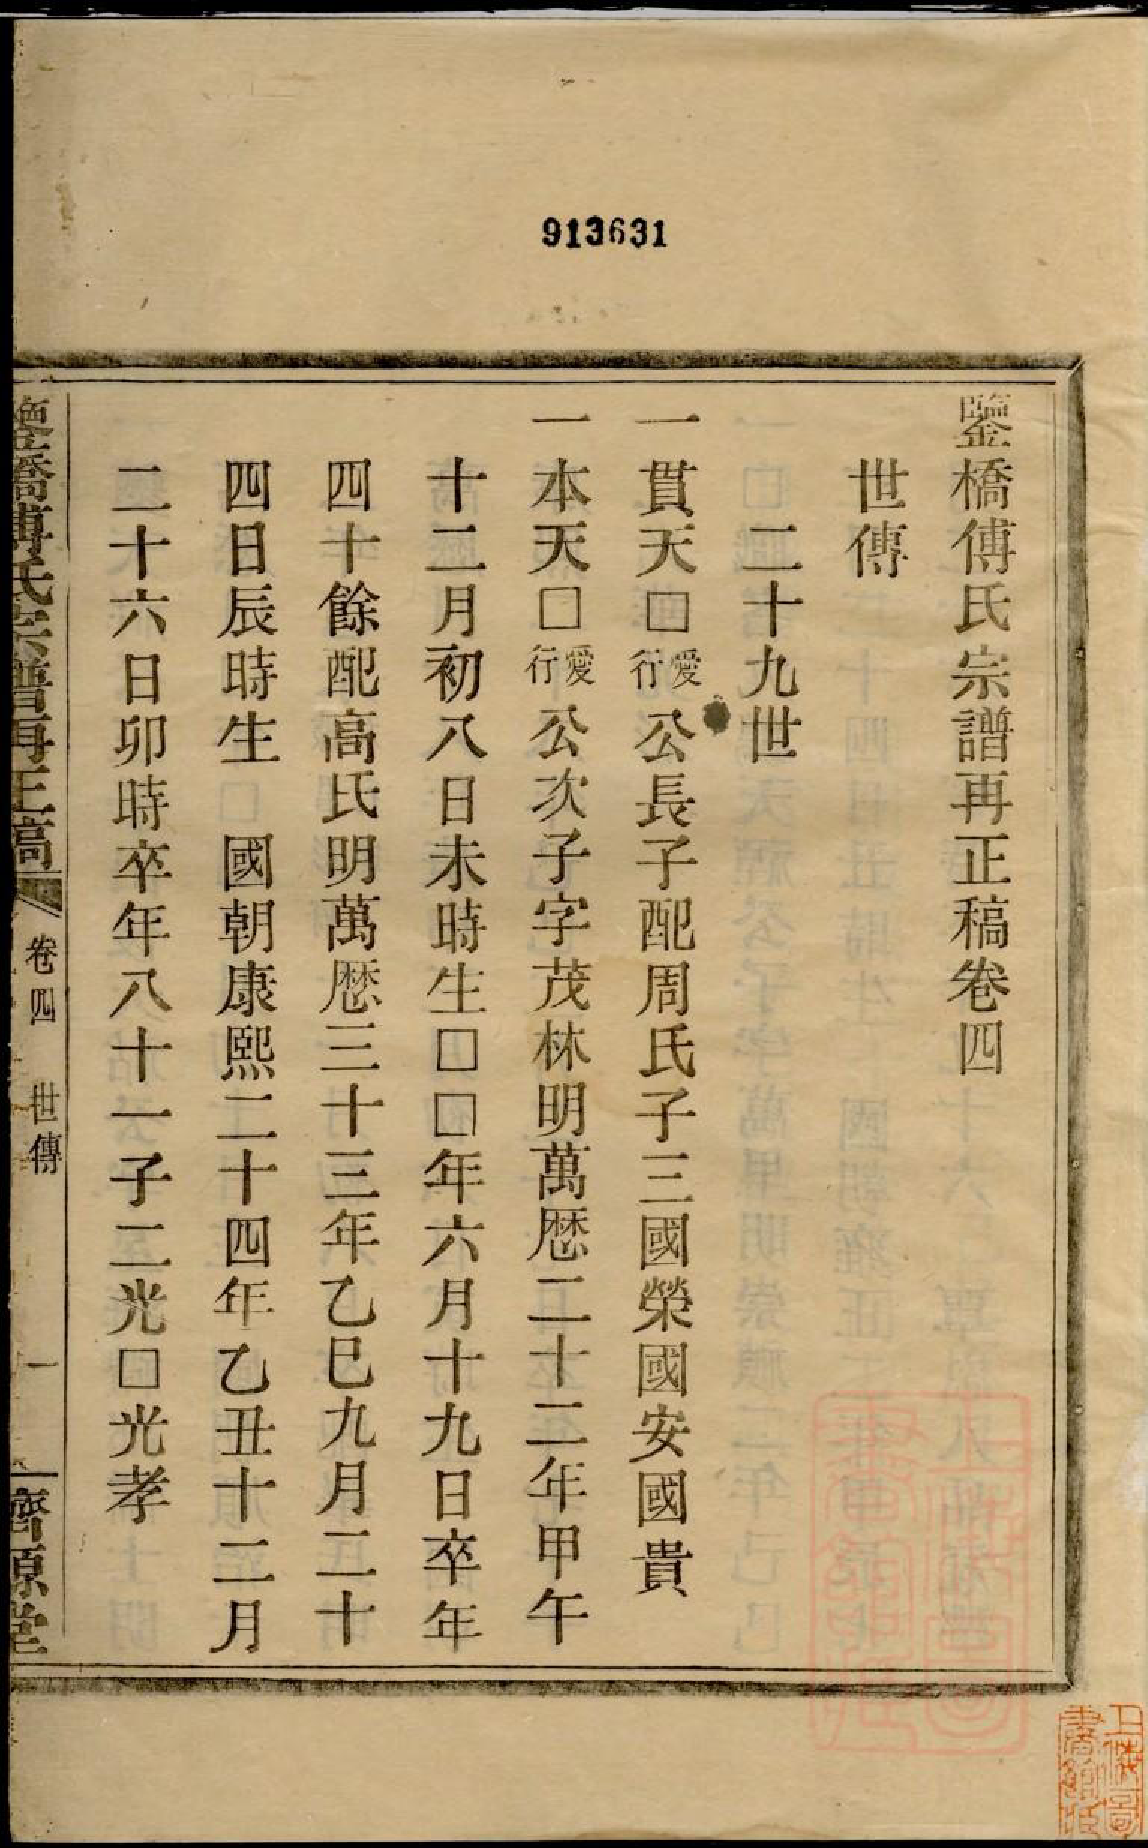 913631
鑒橋傅氏宗譜再正稿卷四
世傳
二十九世
一貫天□愛行公長子配周氏子三國榮國安國貴
一本天□愛行公次子字茂林明萬歷二十二年甲午
十二月初八日未時生□□年六月十九日卒年
四十餘配高氏明萬歷三十三年乙巳九月二十
四日辰時生　國朝康熙二十四年乙丑十二月
二十六日卯時卒年八十一子二光□光孝
鑒橋傅氏宗譜再正稿
卷四
世傳
一
濟源堂
上海圖書館藏